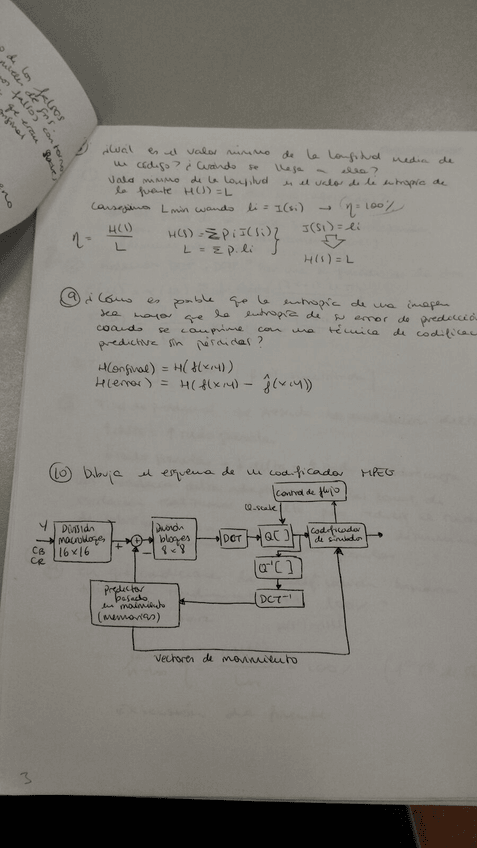 o de los falsos
¿Cual es el valor minimo de la longitud media de
un código? ¿Cuándo se llega a ella?
Valor minimo de la longitud es el valor de la entropia de
la fuente H(S)=L
Conseguimos L min cuando li = I(Si) → η=100%
η = H(S)/L H(S) = Σ pi I(Si) } I(Si) = li
L = Σ pi li ⇓
H(S) = L
9 ¿Cómo es posible que la entropia de una imagen
sea mayor que la entropia de su error de predicció
cuando se comprime con una técnica de codificac
predictiva sin pérdidas?
H(original) = H(f(x,y))
H(error) = H(f(x,y) - f̂(x,y))
10 Dibuja el esquema de un codificador MPEG
control de flujo
Q-scale
Y
CB
CR
División
macrobloques
16x16
+
+
-
División
bloques
8x8
DCT
Q[ ]
codificador
de símbolos
Q⁻¹[ ]
DCT⁻¹
Predictor
basado
en movimiento
(memorias)
vectores de movimiento
3